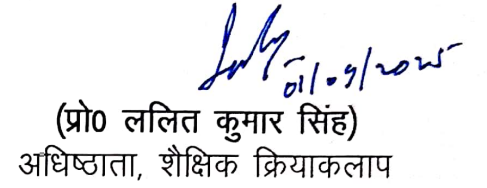 01/09/2025
(प्रो0 ललित कुमार सिंह)
अधिष्ठाता, शैक्षिक क्रियाकलाप